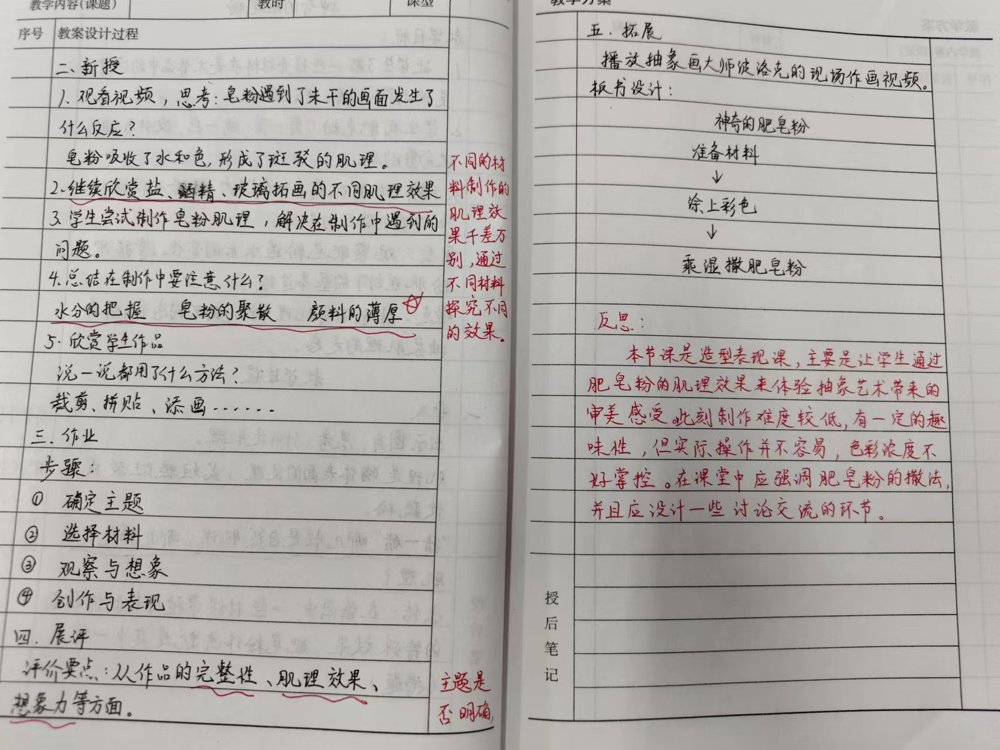 教学内容(课题)
教时
课型
序号
教案设计过程
二、新授
1. 观看视频，思考：皂粉遇到了未干的画面发生了
什么反应？
皂粉吸收了水和色，形成了斑驳的肌理。
2.继续欣赏盐、酒精、玻璃拓画的不同肌理效果
3. 学生尝试制作皂粉肌理，解决在制作中遇到的
问题。
4.总结在制作中要注意什么？
水分的把握 皂粉的聚散 颜料的薄厚
5. 欣赏学生作品
说一说都用了什么方法？
裁剪、拼贴、添画……
三. 作业
步骤：
① 确定主题
② 选择材料
③ 观察与想象
④ 创作与表现
四. 展评
评价要点：从作品的完整性、肌理效果、
想象力等方面。
不同的材
料制作的
肌理效
果千差万
别，通过
不同材料
探究不同
的效果。
主题是
否明确
教学方案
五. 拓展
播放抽象画大师波洛克的现场作画视频。
板书设计：
神奇的肥皂粉
准备材料
↓
涂上彩色
↓
乘湿撒肥皂粉
反思：
本节课是造型表现课，主要是让学生通过
肥皂粉的肌理效果来体验抽象艺术带来的
审美感受。此刻制作难度较低，有一定的趣
味性，但实际操作并不容易，色彩浓度不
好掌控。在课堂中应强调肥皂粉的撒法，
并且应设计一些讨论交流的环节。
授后笔记